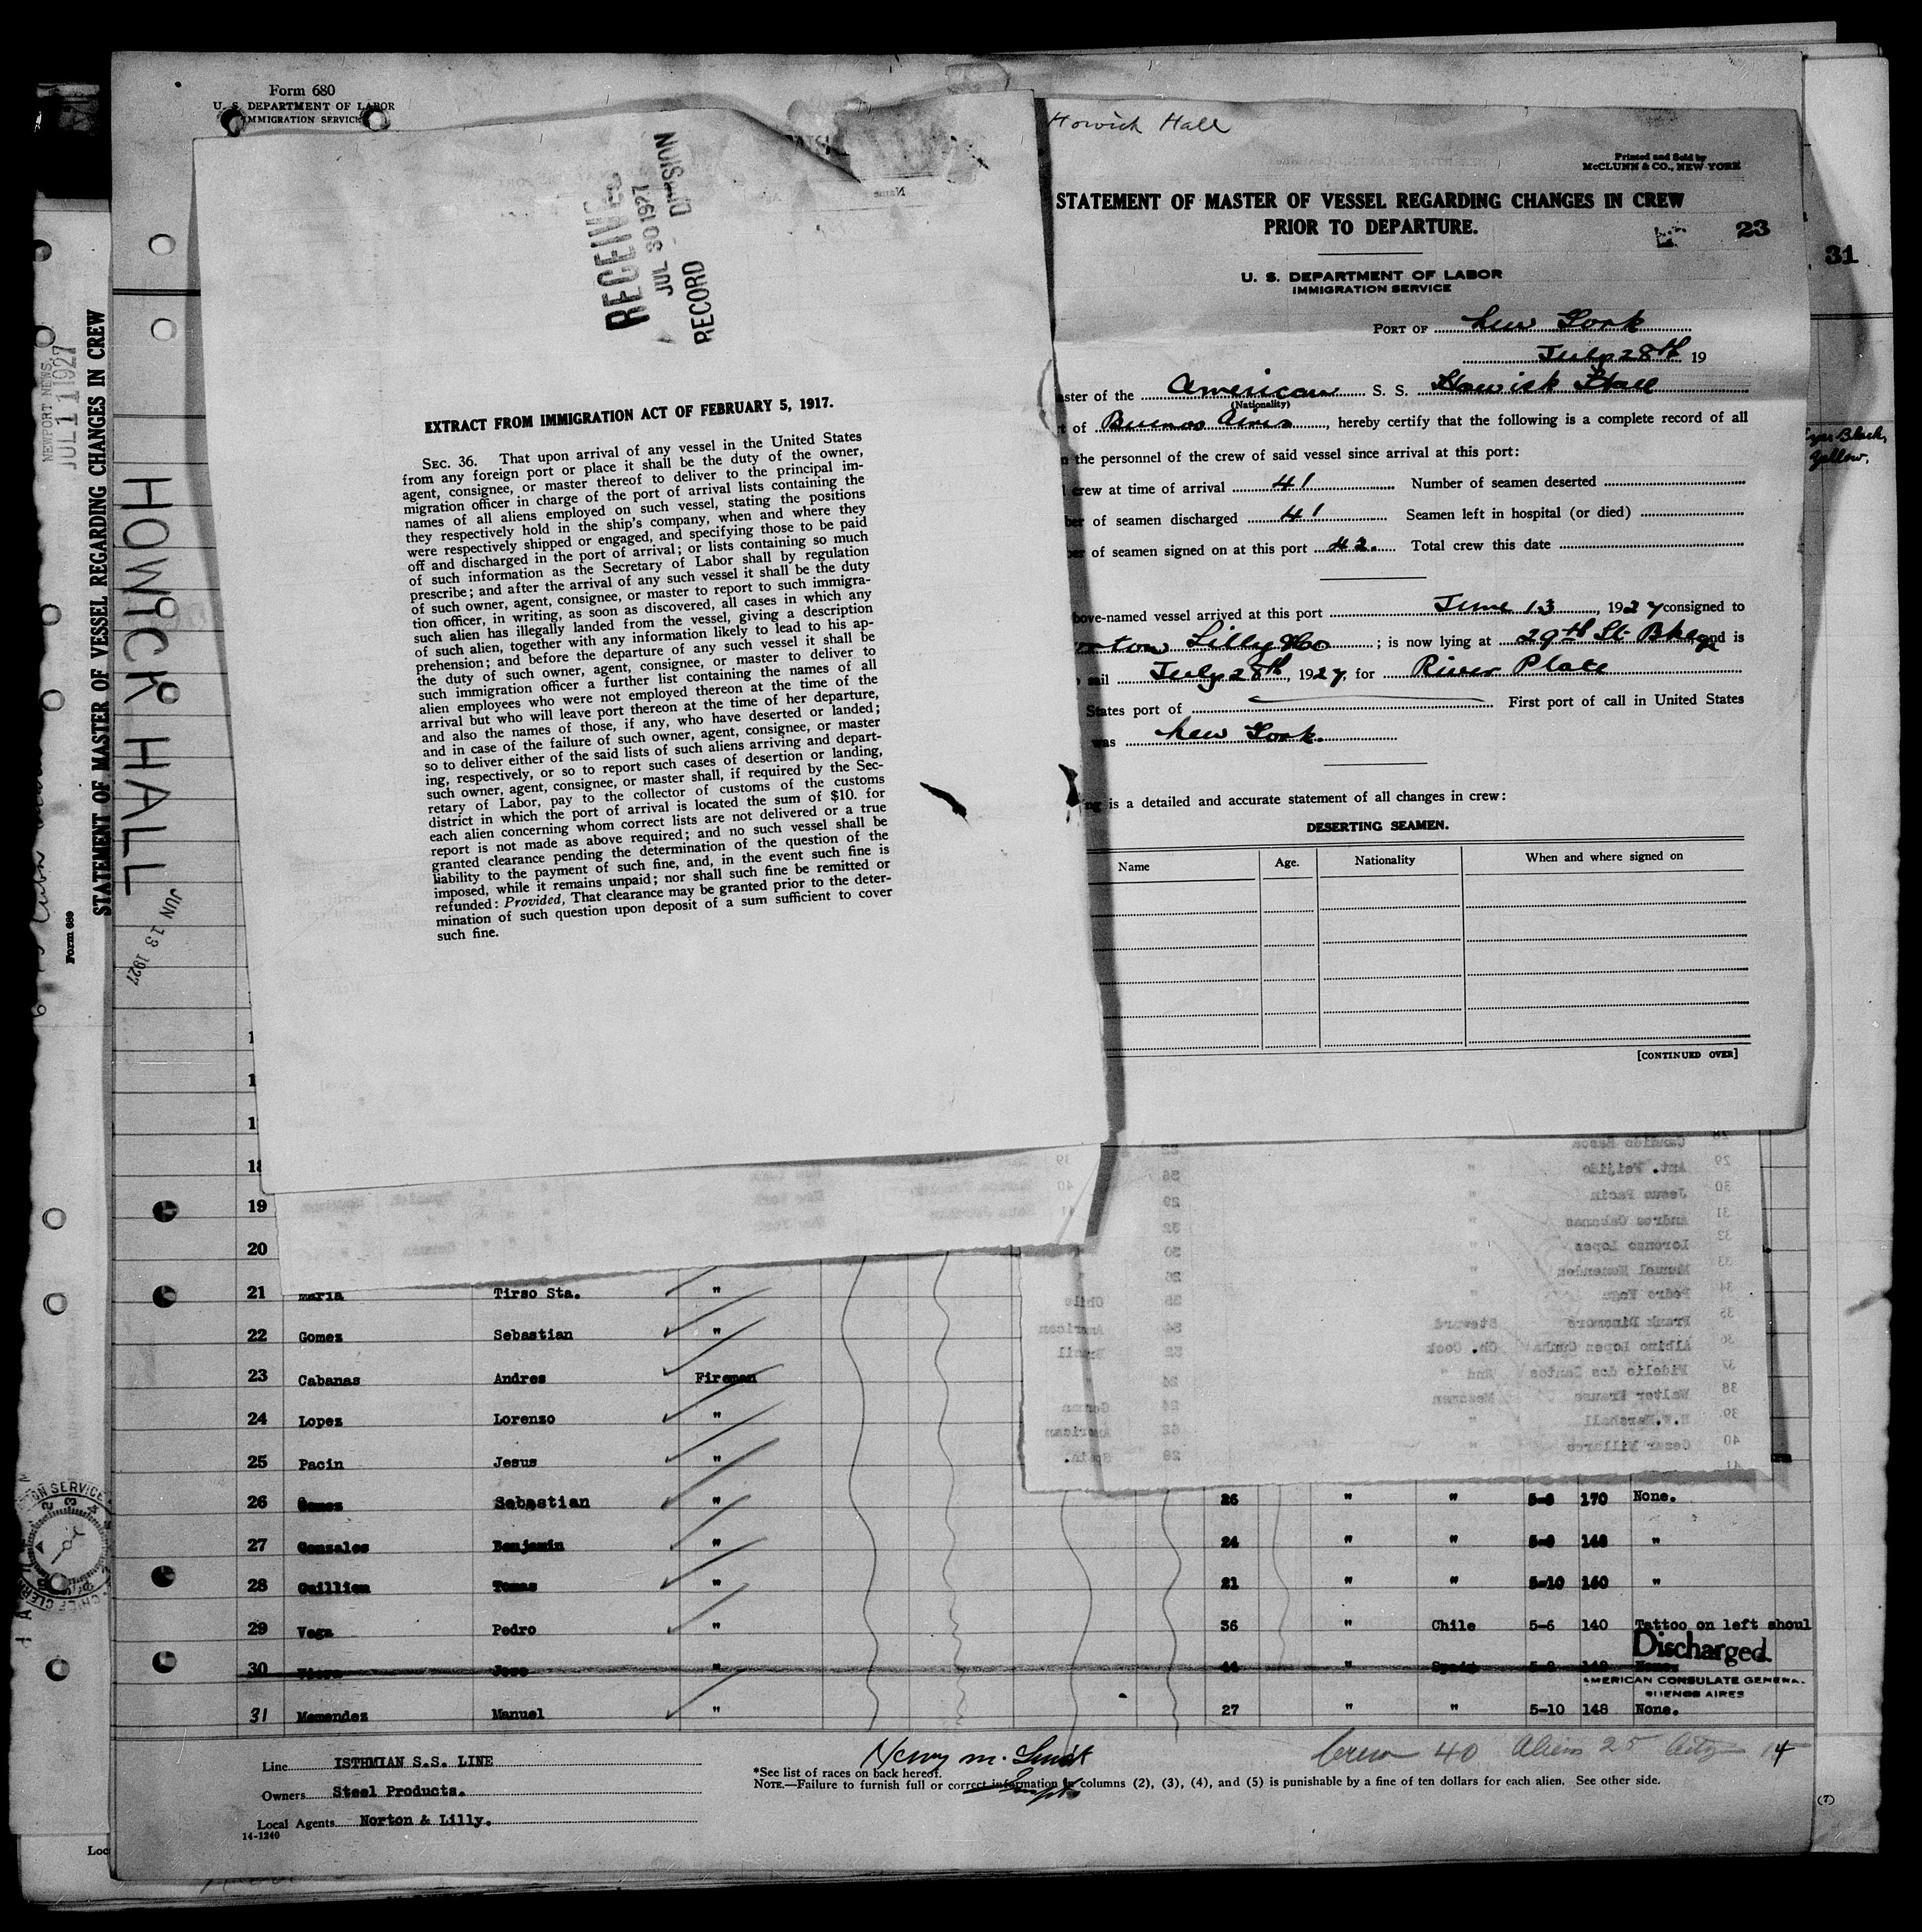 Form 680
U. S. DEPARTMENT OF LABOR
IMMIGRATION SERVICE
RECEIVED
JUL 30 1927
RECORD DIVISION
EXTRACT FROM IMMIGRATION ACT OF FEBRUARY 5, 1917.
SEC. 36. That upon arrival of any vessel in the United States
from any foreign port or place it shall be the duty of the owner,
agent, consignee, or master thereof to deliver to the principal im-
migration officer in charge of the port of arrival lists containing the
names of all aliens employed on such vessel, stating the positions
they respectively hold in the ship's company, when and where they
were respectively shipped or engaged, and specifying those to be paid
off and discharged in the port of arrival; or lists containing so much
of such information as the Secretary of Labor shall by regulation
prescribe; and after the arrival of any such vessel it shall be the duty
of such owner, agent, consignee, or master to report to such immigra-
tion officer, in writing, as soon as discovered, all cases in which any
such alien has illegally landed from the vessel, giving a description
of such alien, together with any information likely to lead to his ap-
prehension; and before the departure of any such vessel it shall be
the duty of such owner, agent, consignee, or master to deliver to
such immigration officer a further list containing the names of all
alien employees who were not employed thereon at the time of the
arrival but who will leave port thereon at the time of her departure,
and also the names of those, if any, who have deserted or landed;
and in case of the failure of such owner, agent, consignee, or master
so to deliver either of the said lists of such aliens arriving and depart-
ing, respectively, or so to report such cases of desertion or landing,
such owner, agent, consignee, or master shall, if required by the Sec-
retary of Labor, pay to the collector of customs of the customs
district in which the port of arrival is located the sum of $10. for
each alien concerning whom correct lists are not delivered or a true
report is not made as above required; and no such vessel shall be
granted clearance pending the determination of the question of the
liability to the payment of such fine, and, in the event such fine is
imposed, while it remains unpaid; nor shall such fine be remitted or
refunded: Provided, That clearance may be granted prior to the deter-
mination of such question upon deposit of a sum sufficient to cover
such fine.
Howick Hall
Printed and Sold by
McCLUNN & CO., NEW YORK
STATEMENT OF MASTER OF VESSEL REGARDING CHANGES IN CREW
PRIOR TO DEPARTURE.
23
31
U. S. DEPARTMENT OF LABOR
IMMIGRATION SERVICE
PORT OF New York
July 28th 19
aster of the American S. S. Howick Hall
(Nationality)
t of Buenos Aires, hereby certify that the following is a complete record of all
n the personnel of the crew of said vessel since arrival at this port:
crew at time of arrival 41 Number of seamen deserted
ber of seamen discharged 41 Seamen left in hospital (or died)
ber of seamen signed on at this port 42. Total crew this date
bove-named vessel arrived at this port June 13, 1927 consigned to
orton Lilly & Co; is now lying at 29th St. Bklyn and is
sail July 28th, 1927, for River Plate
States port of First port of call in United States
was New York.
ng is a detailed and accurate statement of all changes in crew:
DESERTING SEAMEN.
Name Age. Nationality When and where signed on
[CONTINUED OVER]
Eyes Black,
Yellow.
NEWPORT NEWS,
JUL 11 1927
STATEMENT OF MASTER OF VESSEL REGARDING CHANGES IN CREW
Form 689
HOWICK HALL
JUN 13 1927
18
19
20
21 Maria Tirso Sta. "
22 Gomez Sebastian "
23 Cabanas Andres Fireman
24 Lopez Lorenzo "
25 Pacin Jesus "
26 Gomez Sebastian " 26 " " 5-8 170 None.
27 Gonzales Benjamin " 24 " " 5-8 148 "
28 Guillien Tomas " 21 " " 5-10 160 "
29 Vega Pedro " 36 " Chile 5-6 140 Tattoo on left shoul
30 Jose " 44 " Spain
Discharged.
AMERICAN CONSULATE GENERAL
BUENOS AIRES
31 Menendez Manuel " 27 " " 5-10 148 None.
Line ISTHMIAN S.S. LINE
Owners Steel Products.
Local Agents Norton & Lilly.
14-1240
Henry M.
Crew 40 Aliens 25 14
*See list of races on back hereof.
NOTE.—Failure to furnish full or correct information in columns (2), (3), (4), and (5) is punishable by a fine of ten dollars for each alien. See other side.
(7)
Loc